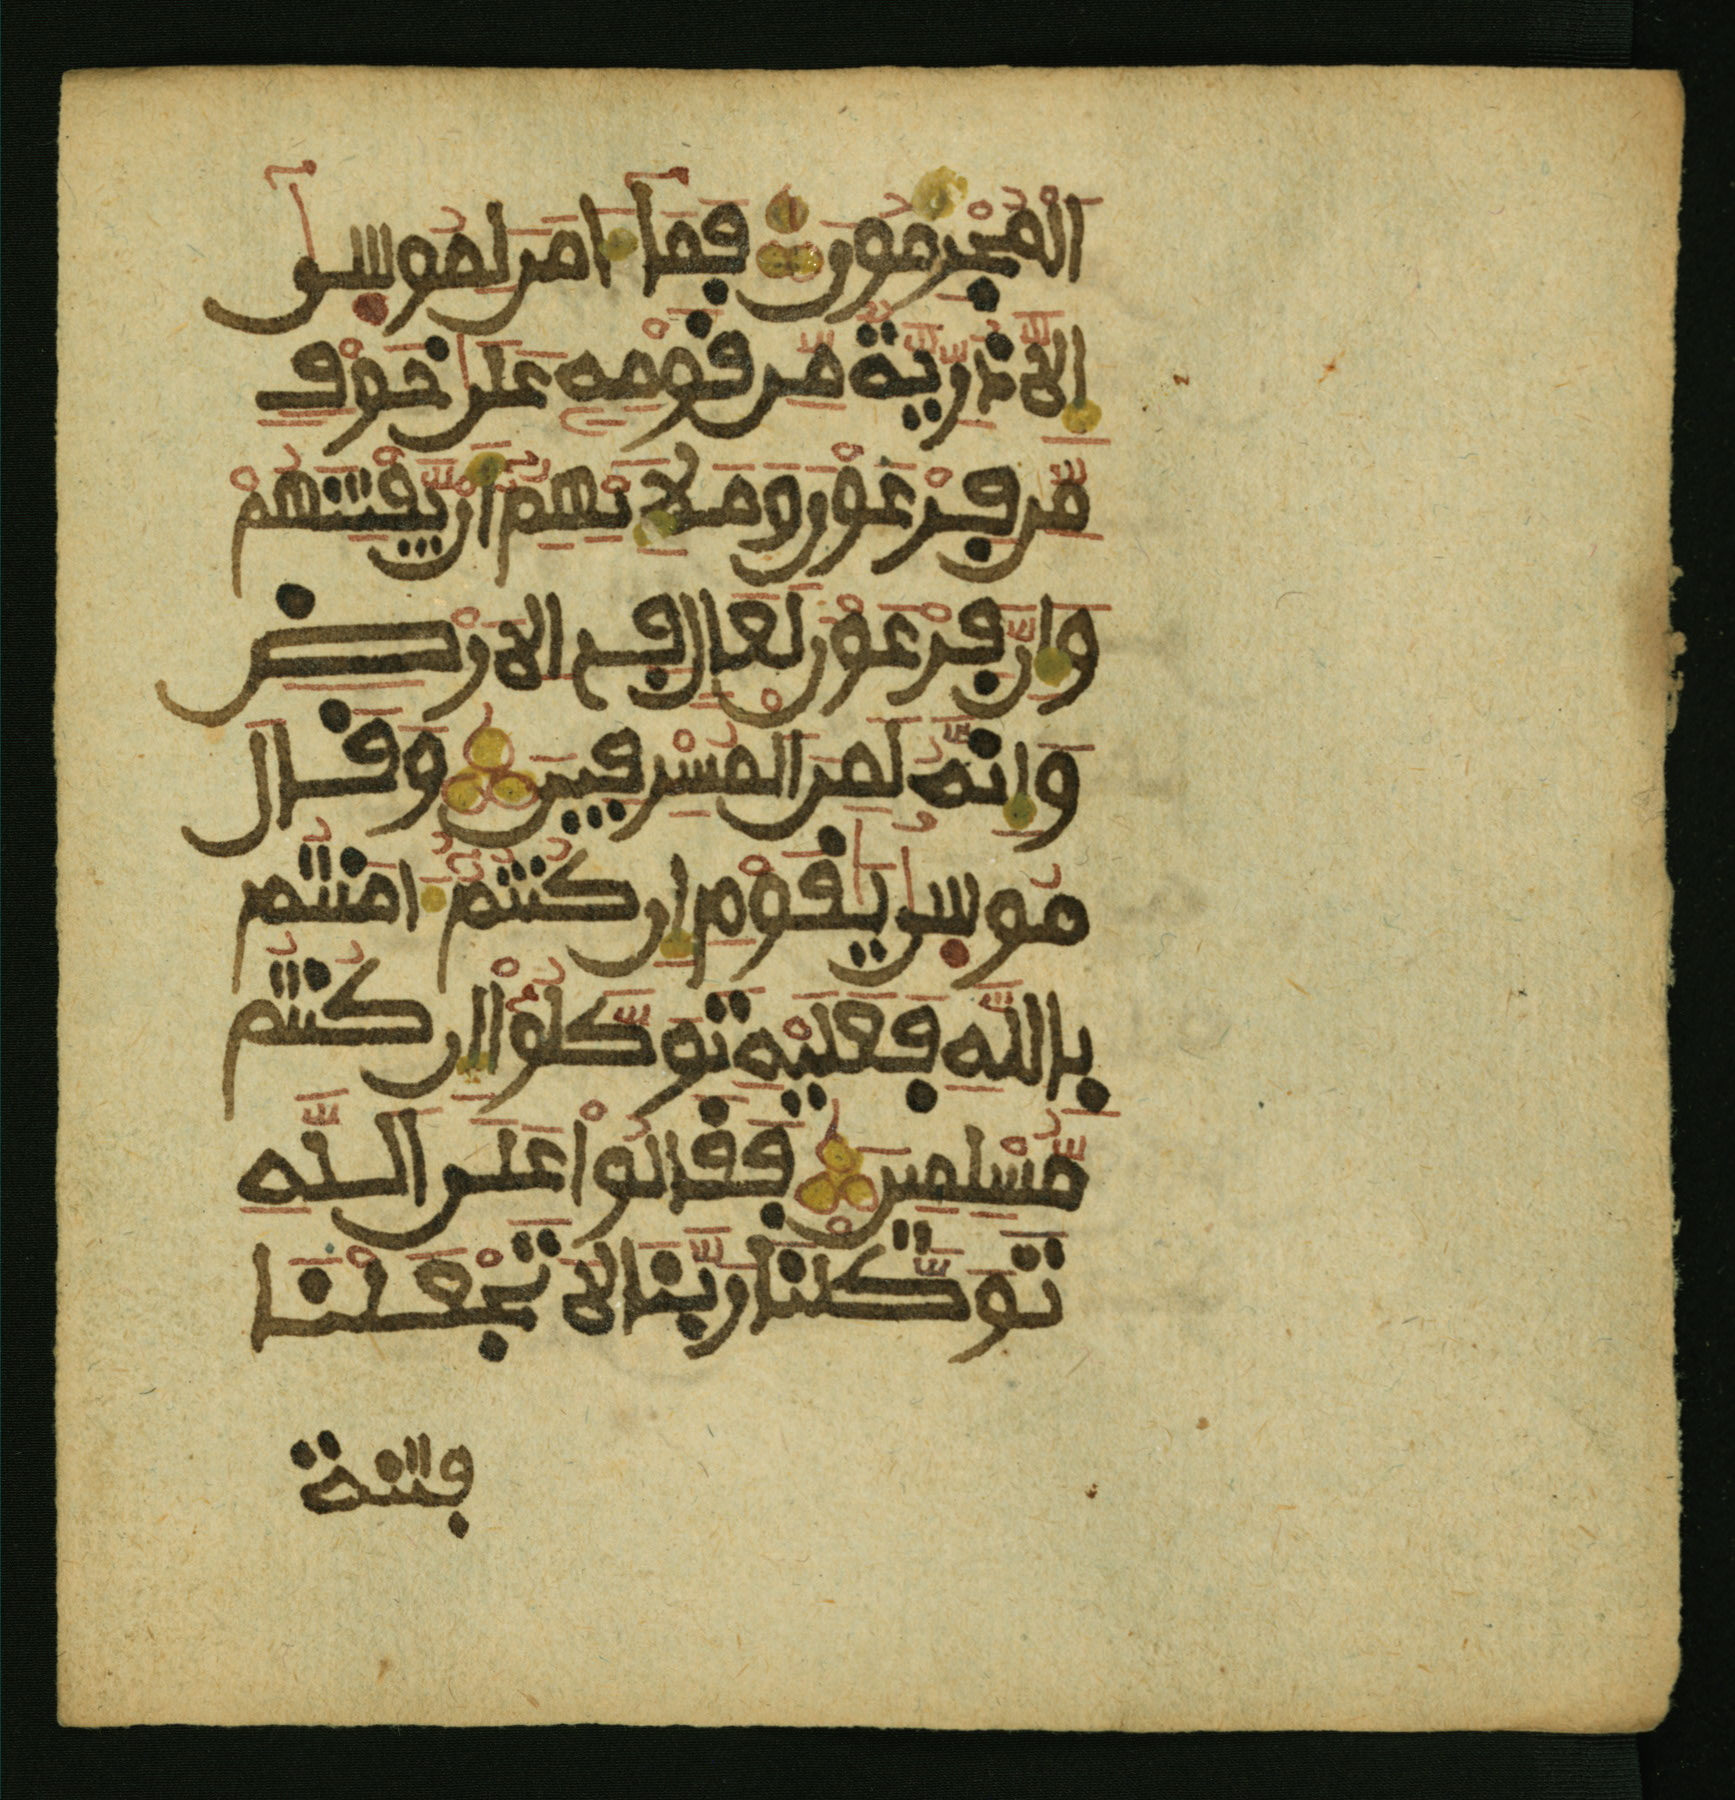 الْمُجْرِمُونَ فَمَا ءَامَنَ لِمُوسَىٰ
إِلَّا ذُرِّيَّةٌ مِّن قَوْمِهِ عَلَىٰ خَوْفٍ
مِّن فِرْعَوْنَ وَمَلَإِيْهِمُ أَن يَّفْتِنَهُمْ
وَإِنَّ فِرْعَوْنَ لَعَالٍ فِي الْأَرْضِ
وَإِنَّهُ لَمِنَ الْمُسْرِفِينَ وَقَالَ
مُوسَىٰ يَٰقَوْمِ إِن كُنتُمُ ءَامَنتُم
بِاللَّهِ فَعَلَيْهِ تَوَكَّلُوا إِن كُنتُم
مُّسْلِمِينَ فَقَالُوا عَلَى اللَّهِ
تَوَكَّلْنَا رَبَّنَا لَا تَجْعَلْنَا
فتنة